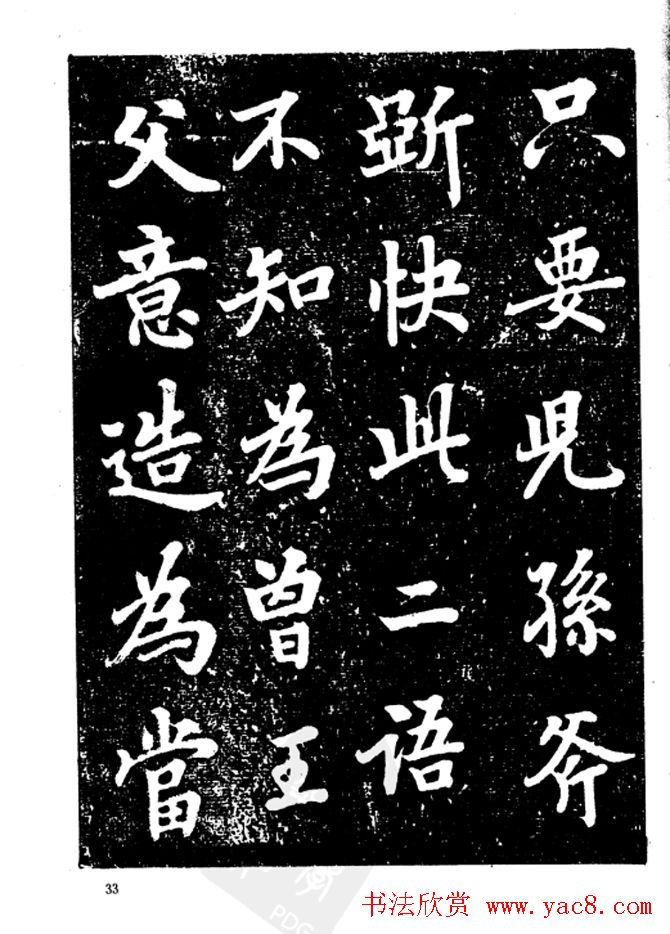 只要兒孫斧
斵快此二語
不知為曾王
父意造為當
33
书法欣赏 www.yac8.com
PDG